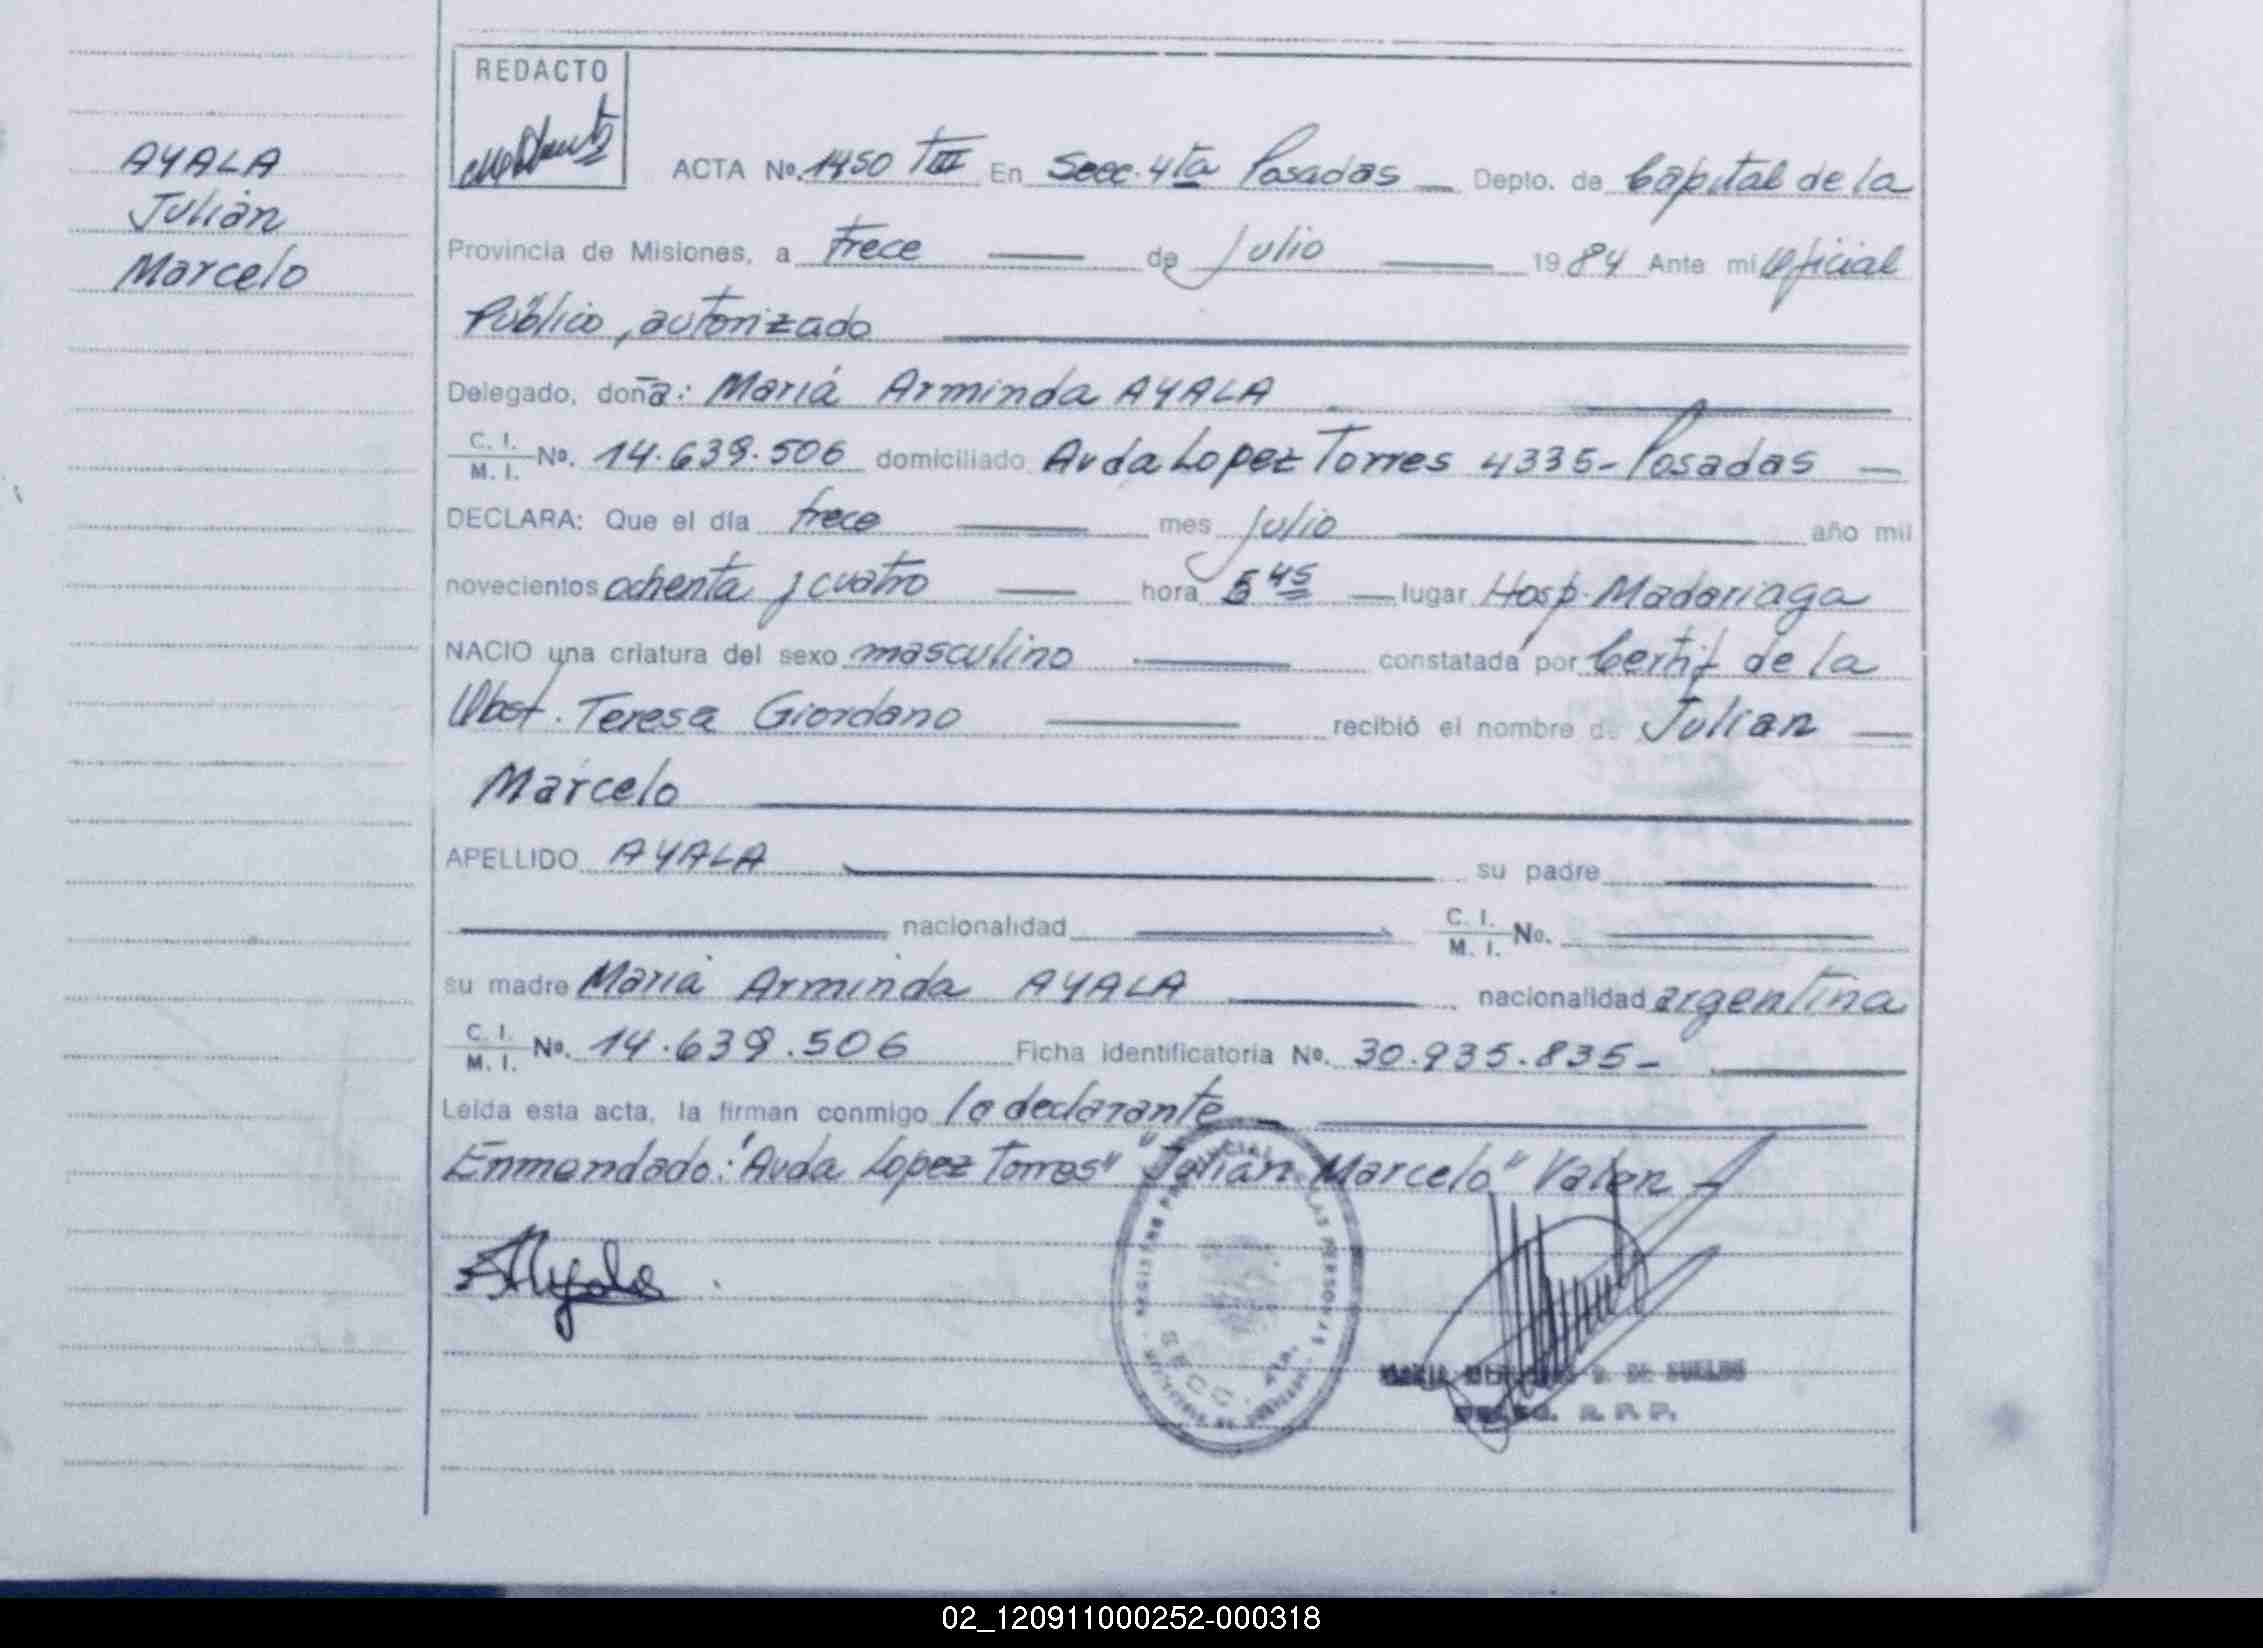 REDACTO
AYALA
Julián
Marcelo
ACTA No. 1450 TIII En Secc. 4ta Posadas — Depto. de Capital de la
Provincia de Misiones, a trece — de julio — 1984 Ante mi Oficial
Público, autorizado
Delegado, doña: María Arminda AYALA
C. I. / M. I. No. 14.639.506 domiciliado Avda Lopez Torres 4335- Posadas —
DECLARA: Que el día trece — mes julio — año mil
novecientos ochenta y cuatro — hora 5 45 — lugar Hosp. Madariaga
NACIO una criatura del sexo masculino — constatada por Certif de la
Obst. Teresa Giordano — recibió el nombre de Julian —
Marcelo
APELLIDO AYALA — su padre —
— nacionalidad — C. I. / M. I. No. —
su madre María Arminda AYALA — nacionalidad argentina
C. I. / M. I. No. 14.639.506 Ficha identificatoria No. 30.935.835-
Leída esta acta, la firman conmigo la declarante —
Enmendado: "Avda Lopez Torres" "Julián Marcelo" Valen -
AAyala
REGISTRO PROVINCIAL LAS PERSONAS
SECC. 4ta.
DE SUELDO
R. P. P.
02_120911000252-000318